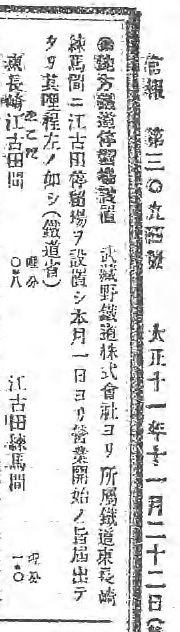 官報 第三〇九四號 大正十一年十一月二十二日
●地方鐵道停留場設置 武藏野鐵道株式會社ヨリ所屬鐵道東長崎
練馬間ニ江古田停留場ヲ設置シ本月一日ヨリ營業開始ノ旨屆出テ
タリ其哩程左ノ如シ(鐵道省)
東長崎江古田間 哩分 〇・八 江古田練馬間 哩分 一・〇